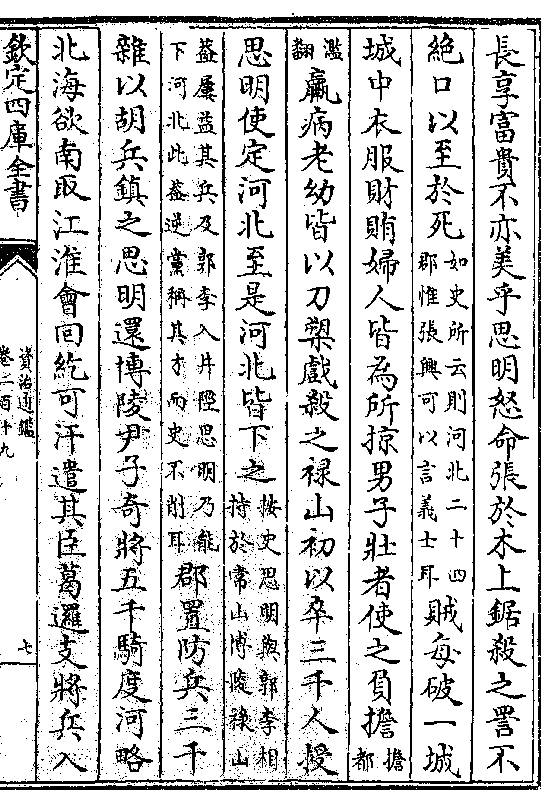 長享富貴不亦美乎思明怒命張於木上鋸殺之詈不
絶口以至於死如史所云則河北二十四郡惟張興可以言義士耳賊每破一城
城中衣服財賄婦人皆為所掠男子壯者使之負擔擔都
濫翻羸病老幼皆以刀槊戲殺之禄山初以卒三千人授
思明使定河北至是河北皆下之按史思明與郭李相持於常山博陵禄山
益屢益其兵及郭李入井陘思明乃能下河北此葢逆黨稱其才而史不削耳郡置防兵三千
雜以胡兵鎮之思明還博陵尹子奇將五千騎度河略
北海欲南取江淮會回紇可汗遣其臣葛邏支將兵入
欽定四庫全書
資治通鑑
卷二百十九
七